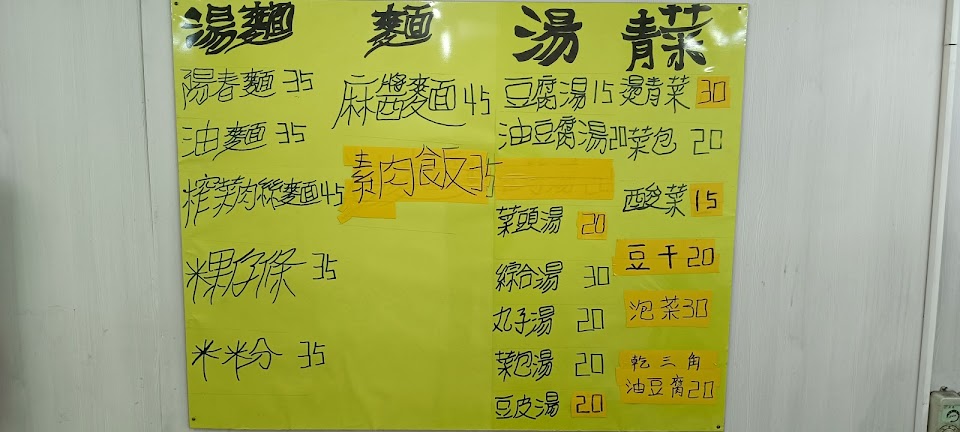 湯麵
陽春麵 35
油麵 35
榨菜肉絲麵 45
粿仔條 35
米粉 35
麵
麻醬麵 45
素肉飯 35
湯
豆腐湯 15
油豆腐湯 20
菜頭湯 20
綜合湯 30
丸子湯 20
菜包湯 20
豆皮湯 20
青菜
燙青菜 30
菜包 20
酸菜 15
豆干 20
泡菜 30
乾三角
油豆腐 20